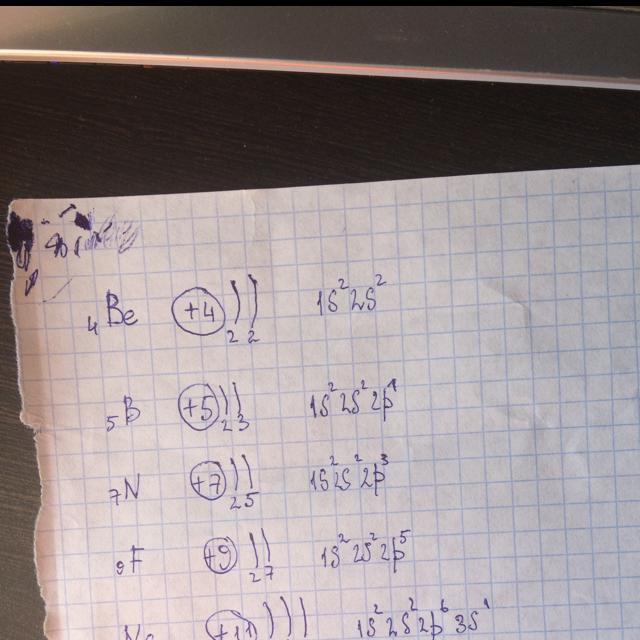 ₄Be (+4) ) ) 2 2 1s²2s²
₅B (+5) ) ) 2 3 1s²2s²2p¹
₇N (+7) ) ) 2 5 1s²2s²2p³
₉F (+9) ) ) 2 7 1s²2s²2p⁵
Na (+11) ) ) ) 1s²2s²2p⁶3s¹